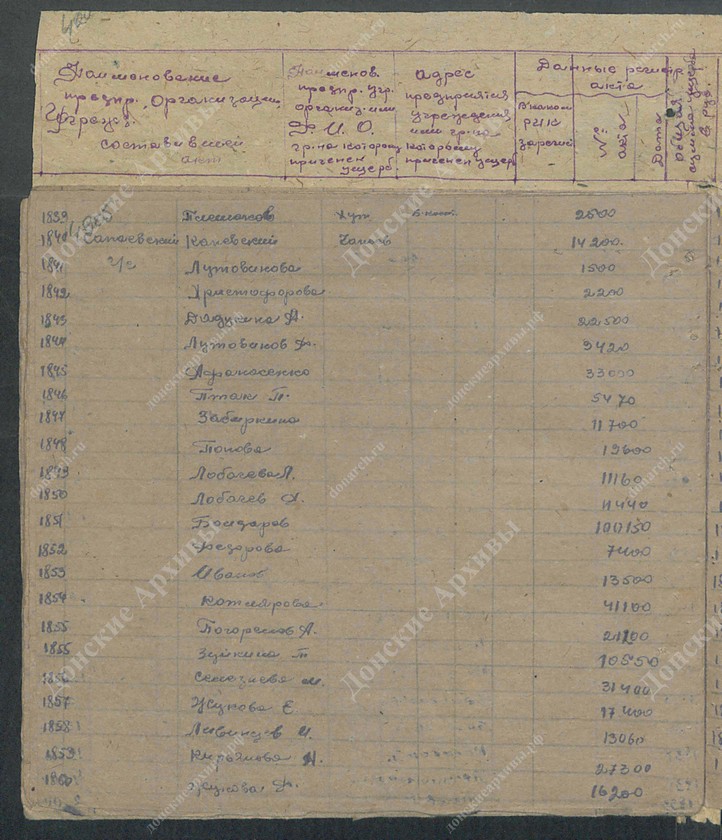 Наименование
предпр. Организации
Учрежд.
составившей
акт
Наименов.
предпр. учр.
организ. или
Ф. И. О.
гр-на которому
причинен
ущерб.
адрес
предприятия
учреждения
или гр-на
которому
причинен ущерб
Данные регистр
акта
в каком
РИК
зарегис
№
акта
Дата
общая
сумма ущерба
в руб.
1839 Хут. 2500
1840 Сапаевский Каневский 14200
1841 с/с Лутовинова 1500
1842 Христофорова 2200
1843 Дядусина А. 22500
1844 Лутовинов Ф. 9420
1845 Афанасенко 33000
1846 Птах П. 5470
1847 11700
1848 Попова 19600
1849 Лобачева Л. 11160
1850 Лобачев 11440
1851 Бондарев 100150
1852 Федорова 7400
1853 Иванов 13500
1854 Котлярова 41100
1855 Погорелов А. 21100
1855 10550
1856 31400
1857 Жукова Е 17400
1858 Ливинцов И. 13060
1859 Кирьянова А. 27300
1860 Жукова Ф. 16200
Донские Архивы
donarch.ru
донскиеархивы.рф